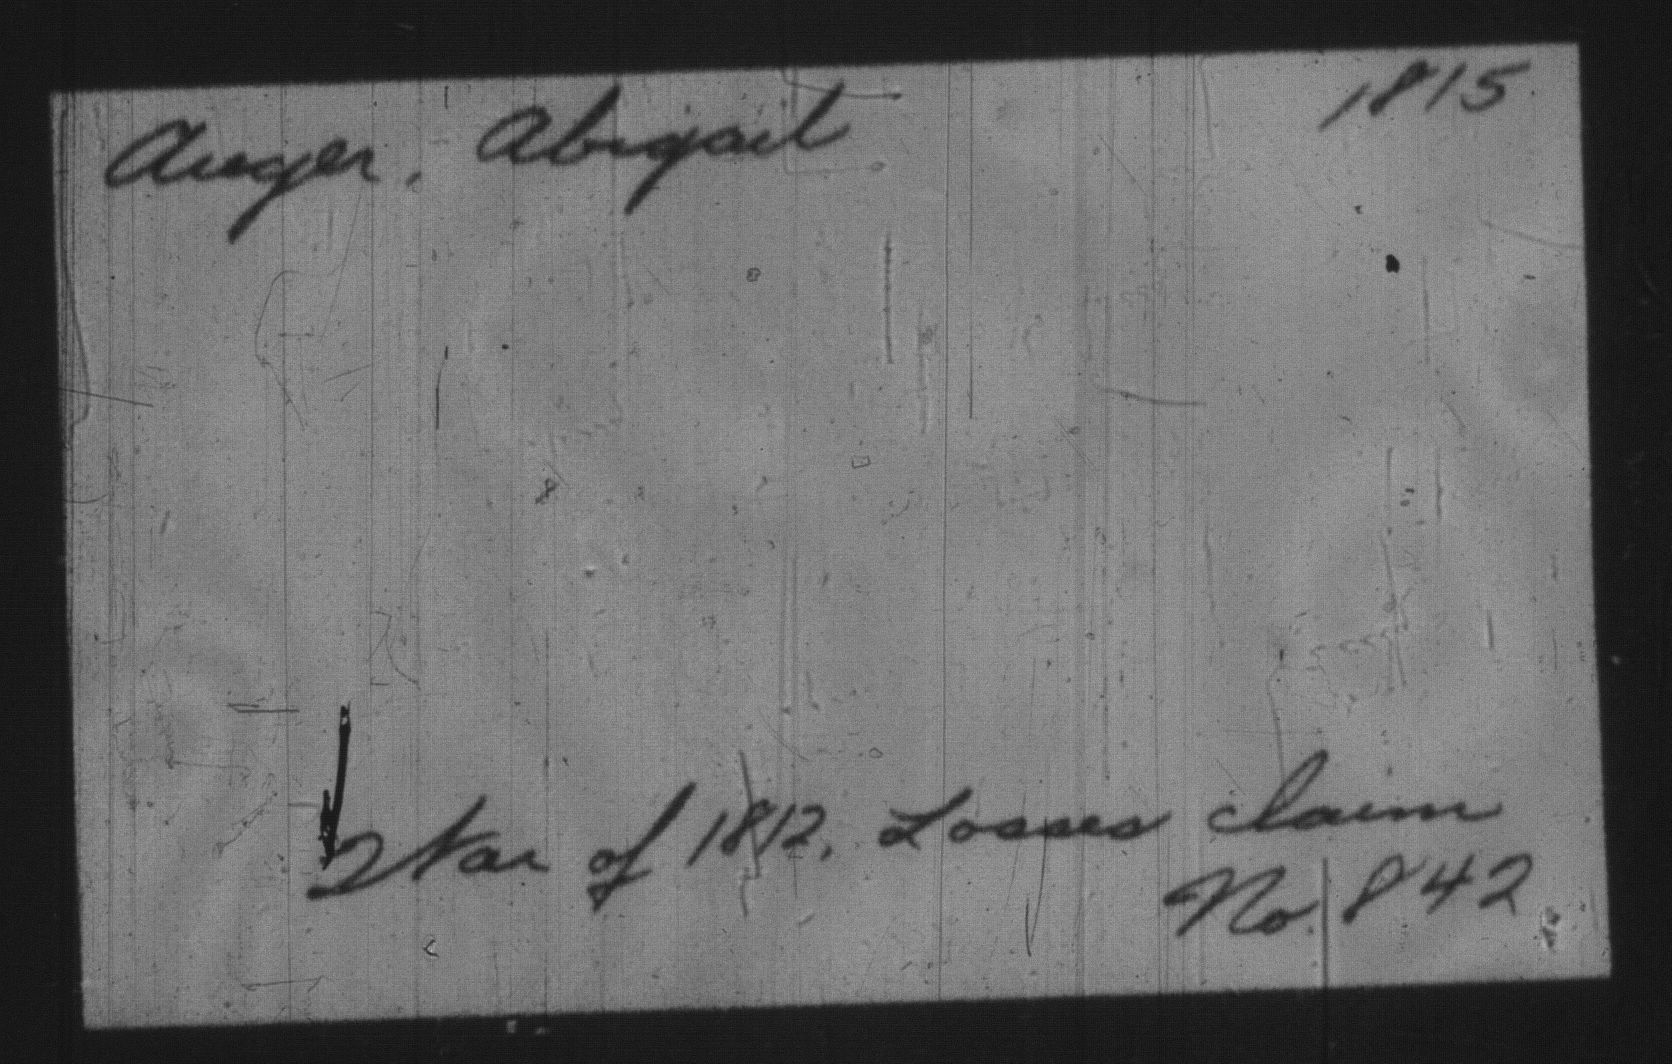 Auger, Abigail
1815
War of 1812, Losses claim
No. 842